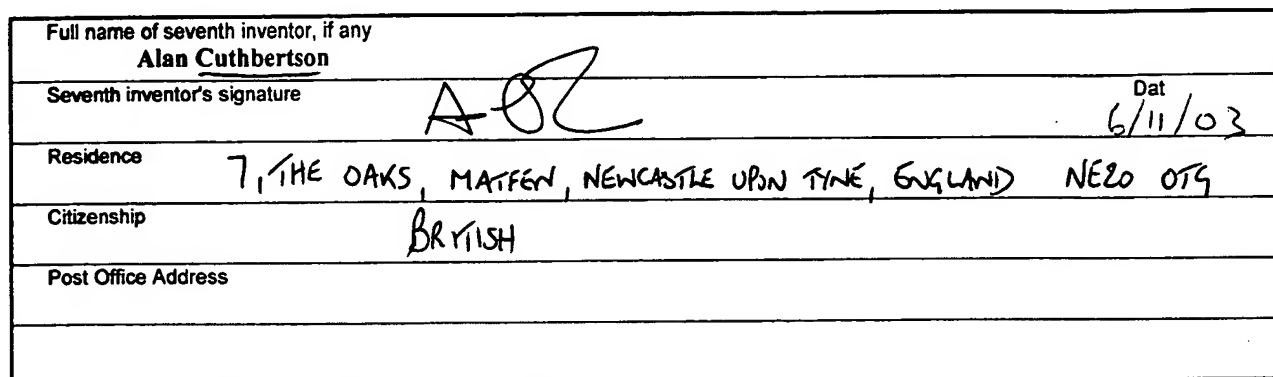 Full name of seventh inventor, if any
Alan Cuthbertson
Seventh inventor's signature
Dat
6/11/03
Residence 7, THE OAKS, MATFEN, NEWCASTLE UPON TYNE, ENGLAND NE20 0TG
Citizenship BRITISH
Post Office Address